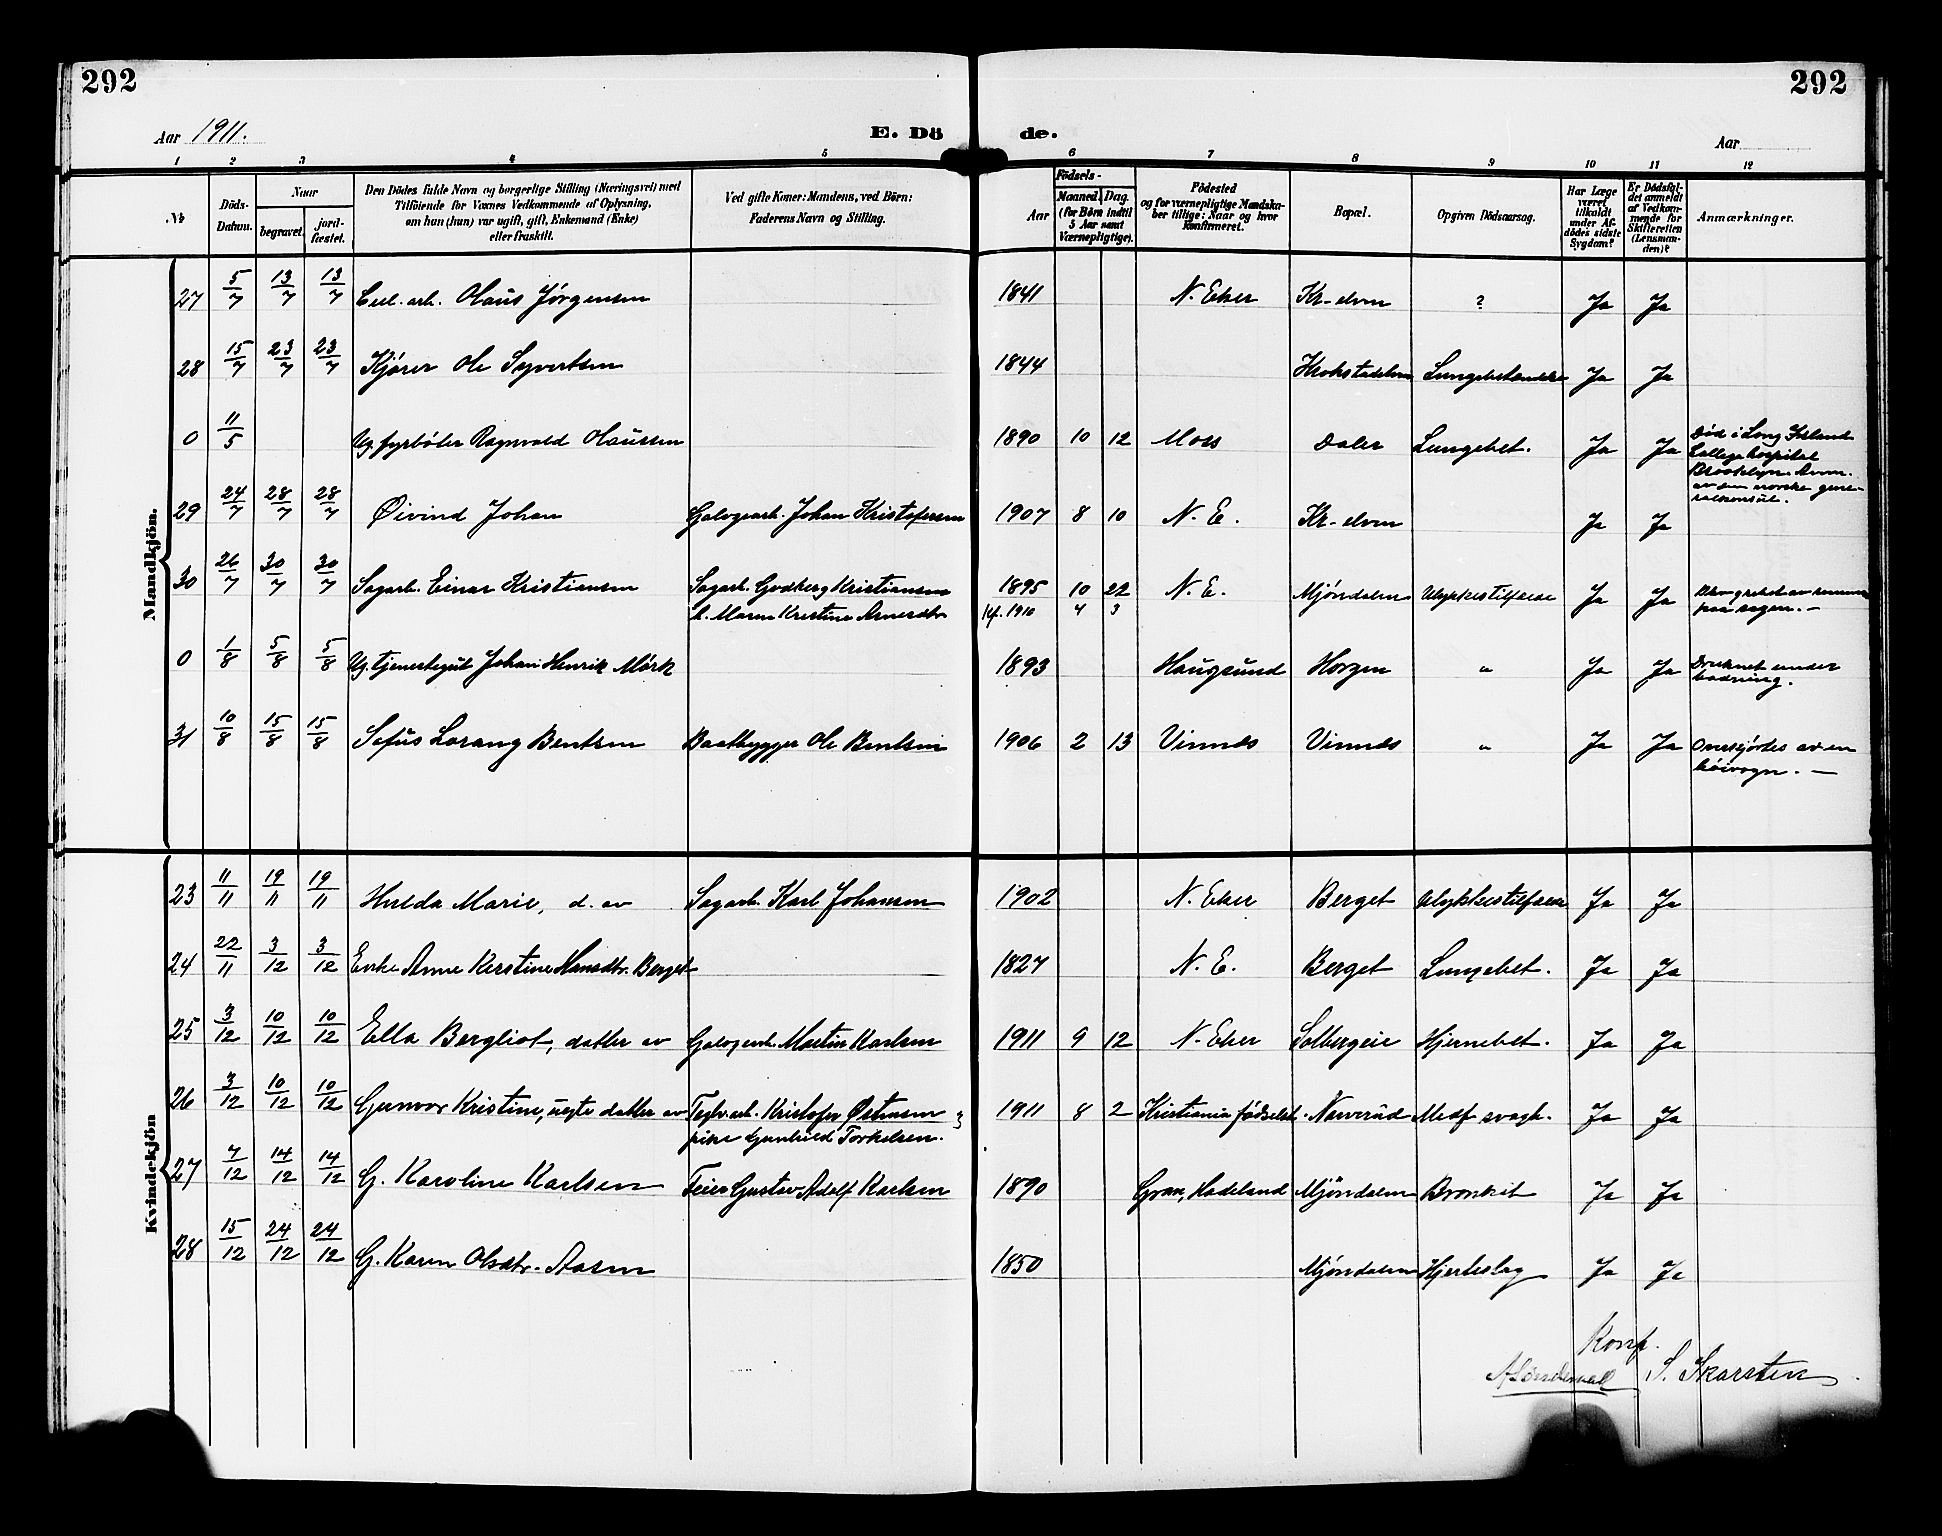 292
292
Aar 1911.
E. Dö
de.
Aar
1 2 3 4 5 6 7 8 9 10 11 12
No
Döds-Datum.
Naar
begravet.
jordfæstet.
Den Dödes fulde Navn og borgerlige Stilling (Næringsvei) med
Tilföiende for Voxnes Vedkommende af Oplysning,
om han (hun) var ugift, gift, Enkemand (Enke)
eller fraskilt.
Ved gifte Koner: Mandens, ved Börn:
Faderens Navn og Stilling.
Födsels-
Aar
Maaned. Dag.
(for Börn indtil
5 Aar samt
Værnepligtige).
Födested
og for værnepligtige Mandskaber tillige: Naar og hvor
konfirmeret.
Bopæl.
Opgiven Dödsaarsag.
Har Læge
været
tilkaldt
under Afdödes sidste
Sygdom?
Er Dödsfaldet anmeldt
af Vedkommende for
Skifteretten
(Lensmanden)?
Anmærkninger.
Mandkjön.
27 5/7 13/7 13/7 Cel. arb. Olaus Jørgensen 1841 N. Eker Kr-elven ? Ja Ja
28 15/7 23/7 23/7 Kjører Ole Syvertsen 1844 Krokstadelven Lungebetændelse Ja Ja
0 11/5 Ug. fyrbøter Ragnvald Olaussen 1890 10 12 Moss Daler Lungebet. Ja Ja Død i Long Island
College hospital
Brooklyn. Anm.
av den norske generalkonsul.
29 24/7 28/7 28/7 Øivind Johan Galogearb. Johan Kristofersen 1907 8 10 N. E. Kr-elven Ja Ja
30 26/7 30/7 30/7 Sagarb. Einar Kristiansen Sagarb. Gudberg Kristiansen 1895 10 22 N. E. Mjøndalen Ulykkestilfælde Ja Ja Blev grebet av remmen
h. Maren Kristine Arnesdtr. Kf. 1910 4 3 paa sagen. —
0 1/8 5/8 5/8 Ug. tjenestegut Johan Henrik Mørk 1893 Haugsund Horgen " Ja Ja Druknet under
badning.
31 10/8 15/8 15/8 Sofus Lorang Bentsen Baatbygger Ole Bentsen 1906 2 13 Vinnes Vinnes " Ja Ja Overkjørtes av en
høivogn. —
Kvindekjön
23 11/11 19/11 19/11 Hulda Marie, d. av Sagarb. Karl Johansen 1902 N. Eker Berget Ulykkestilfælde Ja Ja
24 22/11 3/12 3/12 Enke Anne Kerstine Hansdtr. Berget 1827 N. E. Berget Lungebet. Ja Ja
25 3/12 10/12 10/12 Ella Bergliot, datter av Galogearb. Martin Karlsen 1911 9 12 N. Eker Solbergeie Hjernebet. Ja Ja
26 3/12 10/12 10/12 Gunvor Kristine, uegte datter av Teglv.arb. Kristofer Østensen 1911 8 2 Kristiania fødselst. Narverud Medf. svagh. Ja Ja
pike Gunhild Torkelsen.
27 7/12 14/12 14/12 G. Karoline Karlsen Feier Gustav Adolf Karlsen 1890 Gran, Hadeland Mjøndalen Bronkit Ja Ja
28 15/12 24/12 24/12 G. Karen Olsdtr. Aasen 1850 Mjøndalen Hjerteslag Ja Ja
Konf.
S. Skarsten